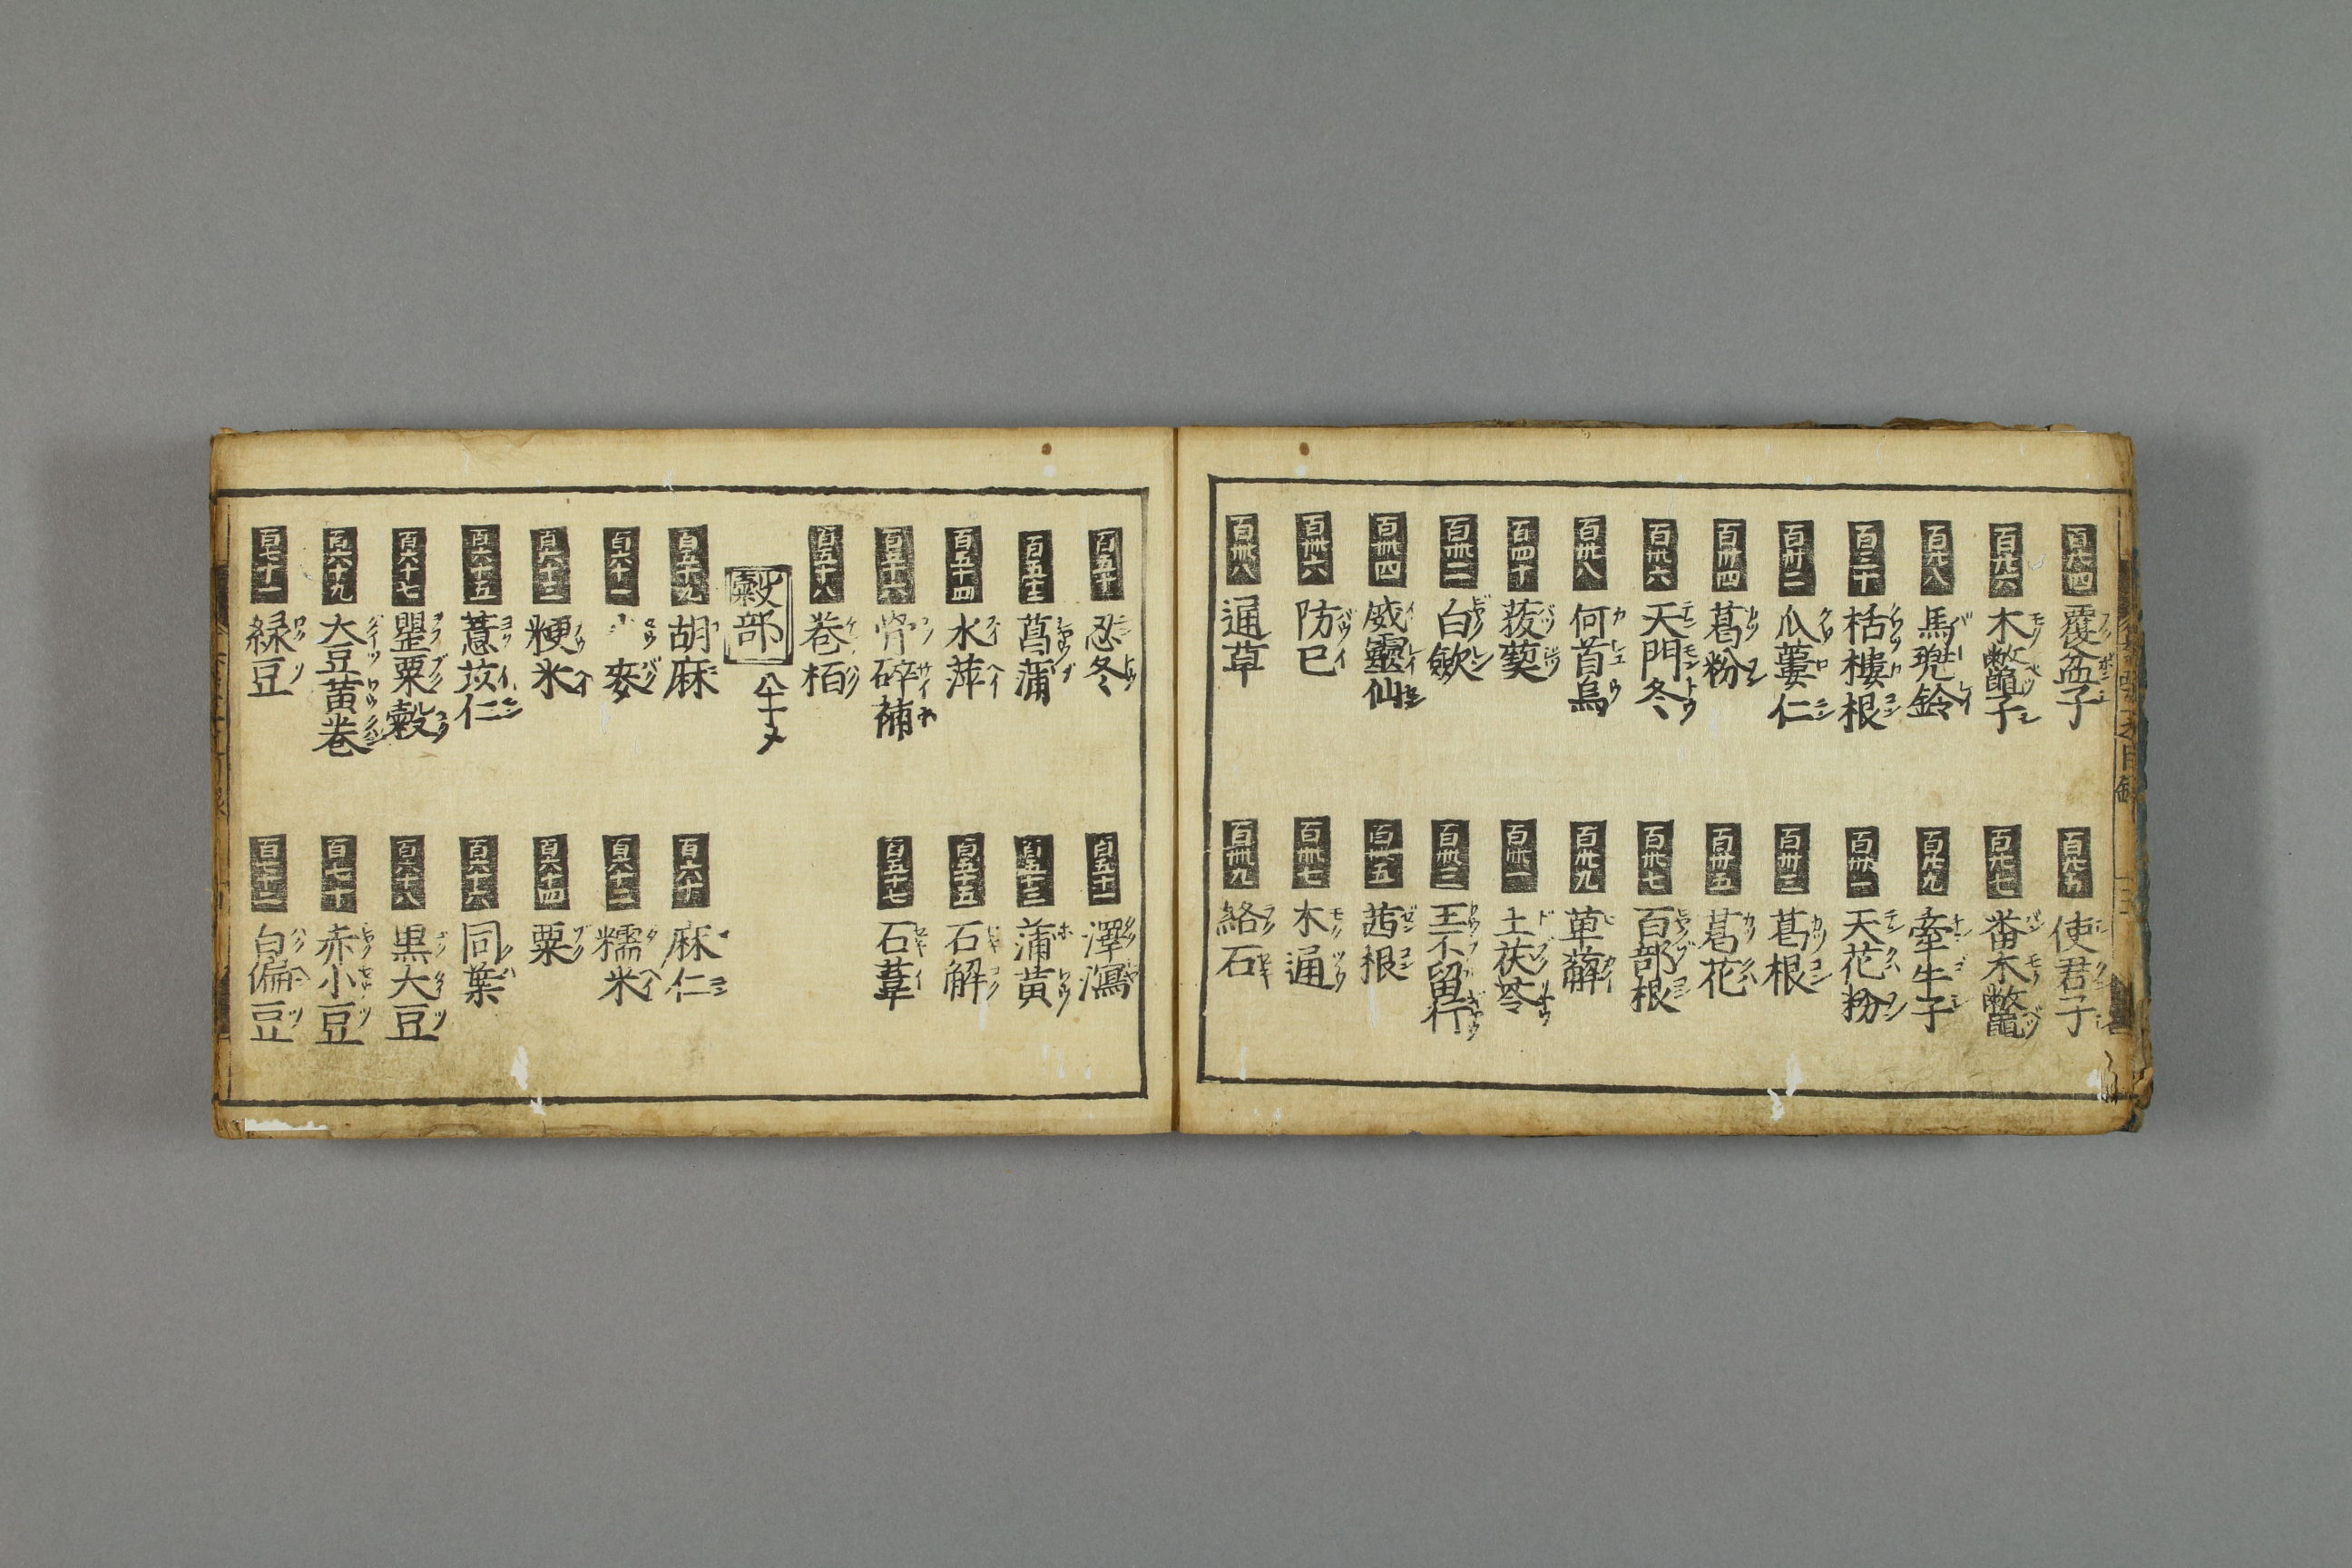 百廿四 覆盆子
百廿五 使君子
百廿六 木鼈子
百廿七 番木鼈
百廿八 馬兜鈴
百廿九 牽牛子
百三十 栝樓根
百卅一 天花粉
百卅二 瓜蔞仁
百卅三 葛根
百卅四 葛粉
百卅五 葛花
百卅六 天門冬
百卅七 百部根
百卅八 何首烏
百卅九 萆薢
百四十 菝葜
百卌一 土茯苓
百卌二 白歛
百卌三 王不留行
百卌四 威靈仙
百卌五 茜根
百卌六 防已
百卌七 木通
百卌八 通草
百卌九 絡石
百五十 忍冬
百五十一 澤瀉
百五十二 菖蒲
百五十三 蒲黄
百五十四 水萍
百五十五 石斛
百五十六 骨碎補
百五十七 石葦
百五十八 巻栢
穀部
百五十九 胡麻
百六十 麻仁
百六十一 麥
百六十二 糯米
百六十三 粳米
百六十四 粟
百六十五 薏苡仁
百六十六 同葉
百六十七 罌粟穀
百六十八 黒大豆
百六十九 大豆黄巻
百七十 赤小豆
百七十一 緑豆
百七十二 白偏豆